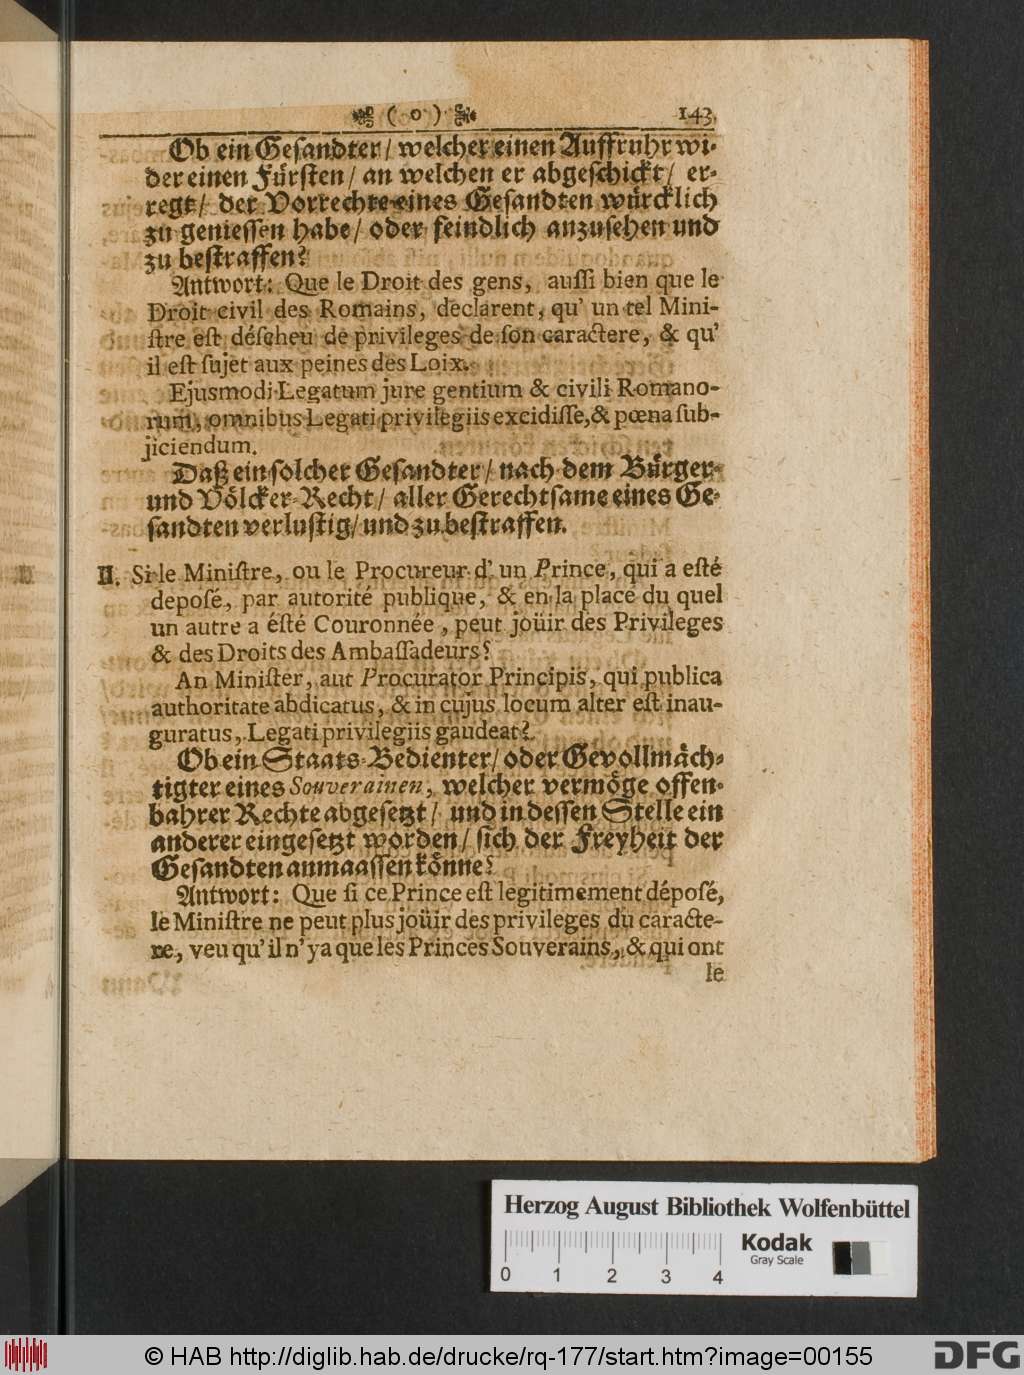 ( o ) 143.
Ob ein Gesandter / welcher einen Auffruhr wi-
der einen Fürsten / an welchen er abgeschickt / er-
regt / der Vorrechte eines Gesandten würcklich
zu geniessen habe / oder feindlich anzusehen und
zu bestraffen?
Antwort: Que le Droit des gens, aussi bien que le
Droit civil des Romains, declarent, qu' un tel Mini-
stre est déscheu de privileges de son caractere, & qu'
il est sujet aux peines des Loix.
Ejusmodi Legatum jure gentium & civili Romano-
rum, omnibus Legati privilegiis excidisse, & pœna sub-
jiciendum.
Daß ein solcher Gesandter / nach dem Bürger-
und Völcker-Recht / aller Gerechtsame eines Ge-
sandten verlustig / und zu bestraffen.
II. Si le Ministre, ou le Procureur d' un Prince, qui a esté
deposé, par autorité publique, & en la place du quel
un autre a ésté Couronnée, peut joüir des Privileges
& des Droits des Ambassadeurs?
An Minister, aut Procurator Principis, qui publica
authoritate abdicatus, & in cujus locum alter est inau-
guratus, Legati privilegiis gaudeat?
Ob ein Staats-Bedienter / oder Gevollmäch-
tigter eines Souverainen, welcher vermöge offen-
bahrer Rechte abgesetzt / und in dessen Stelle ein
anderer eingesetzt worden / sich der Freyheit der
Gesandten anmaassen könne?
Antwort: Que si ce Prince est legitimement déposé,
le Ministre ne peut plus joüir des privileges du caracte-
re, veu qu' il n' ya que les Princes Souverains, & qui ont
le
Herzog August Bibliothek Wolfenbüttel
Kodak
Gray Scale
0 1 2 3 4
© HAB http://diglib.hab.de/drucke/rq-177/start.htm?image=00155
DFG